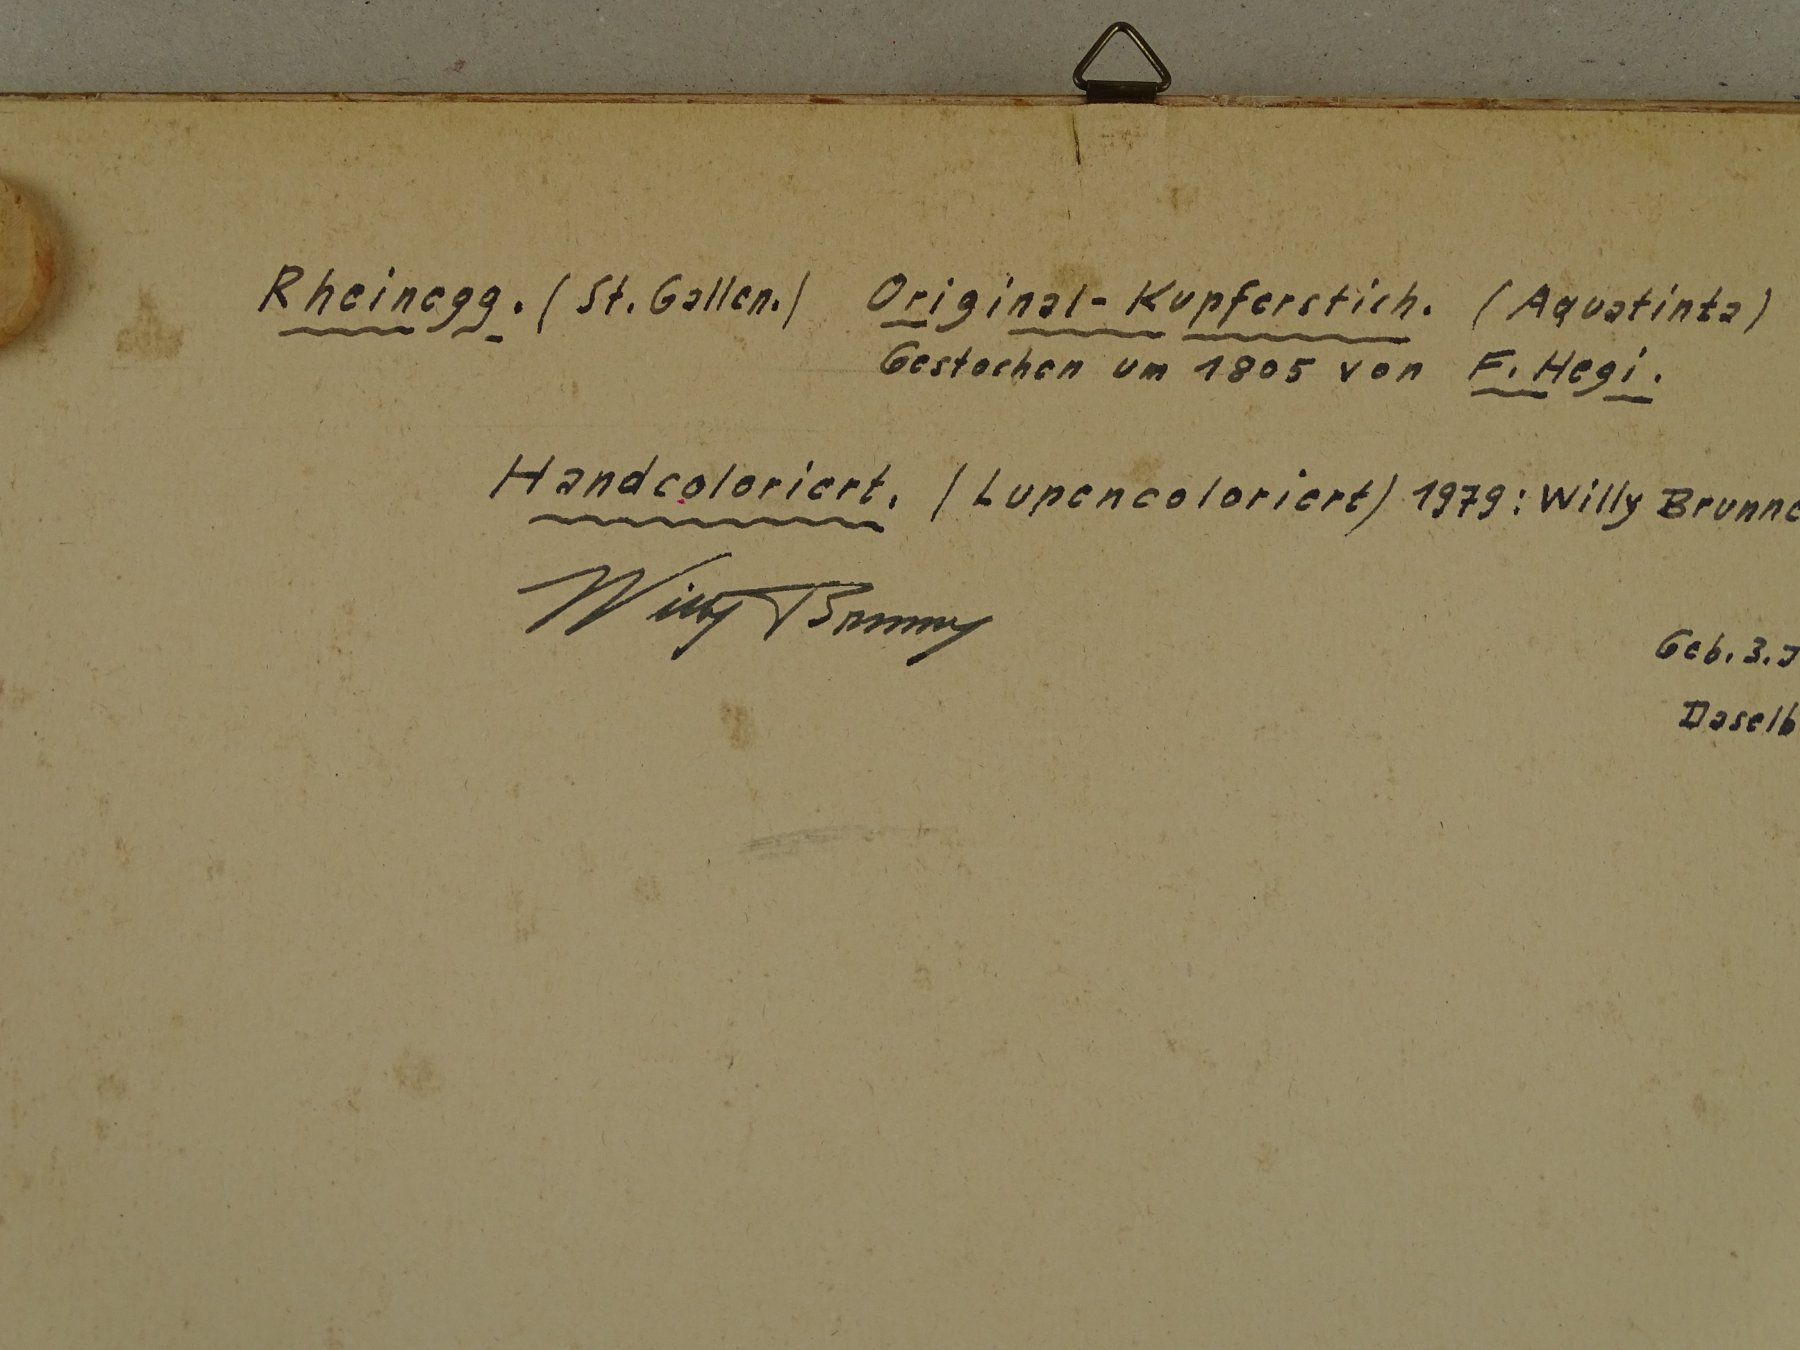 Rheinegg. (St. Gallen.) Original-Kupferstich. (Aquatinta)
Gestochen um 1805 von F. Hegi.
Handcoloriert. (Lupencoloriert) 1979: Willy Brunne
Willy Brunner
Geb. 3. J
Daselb